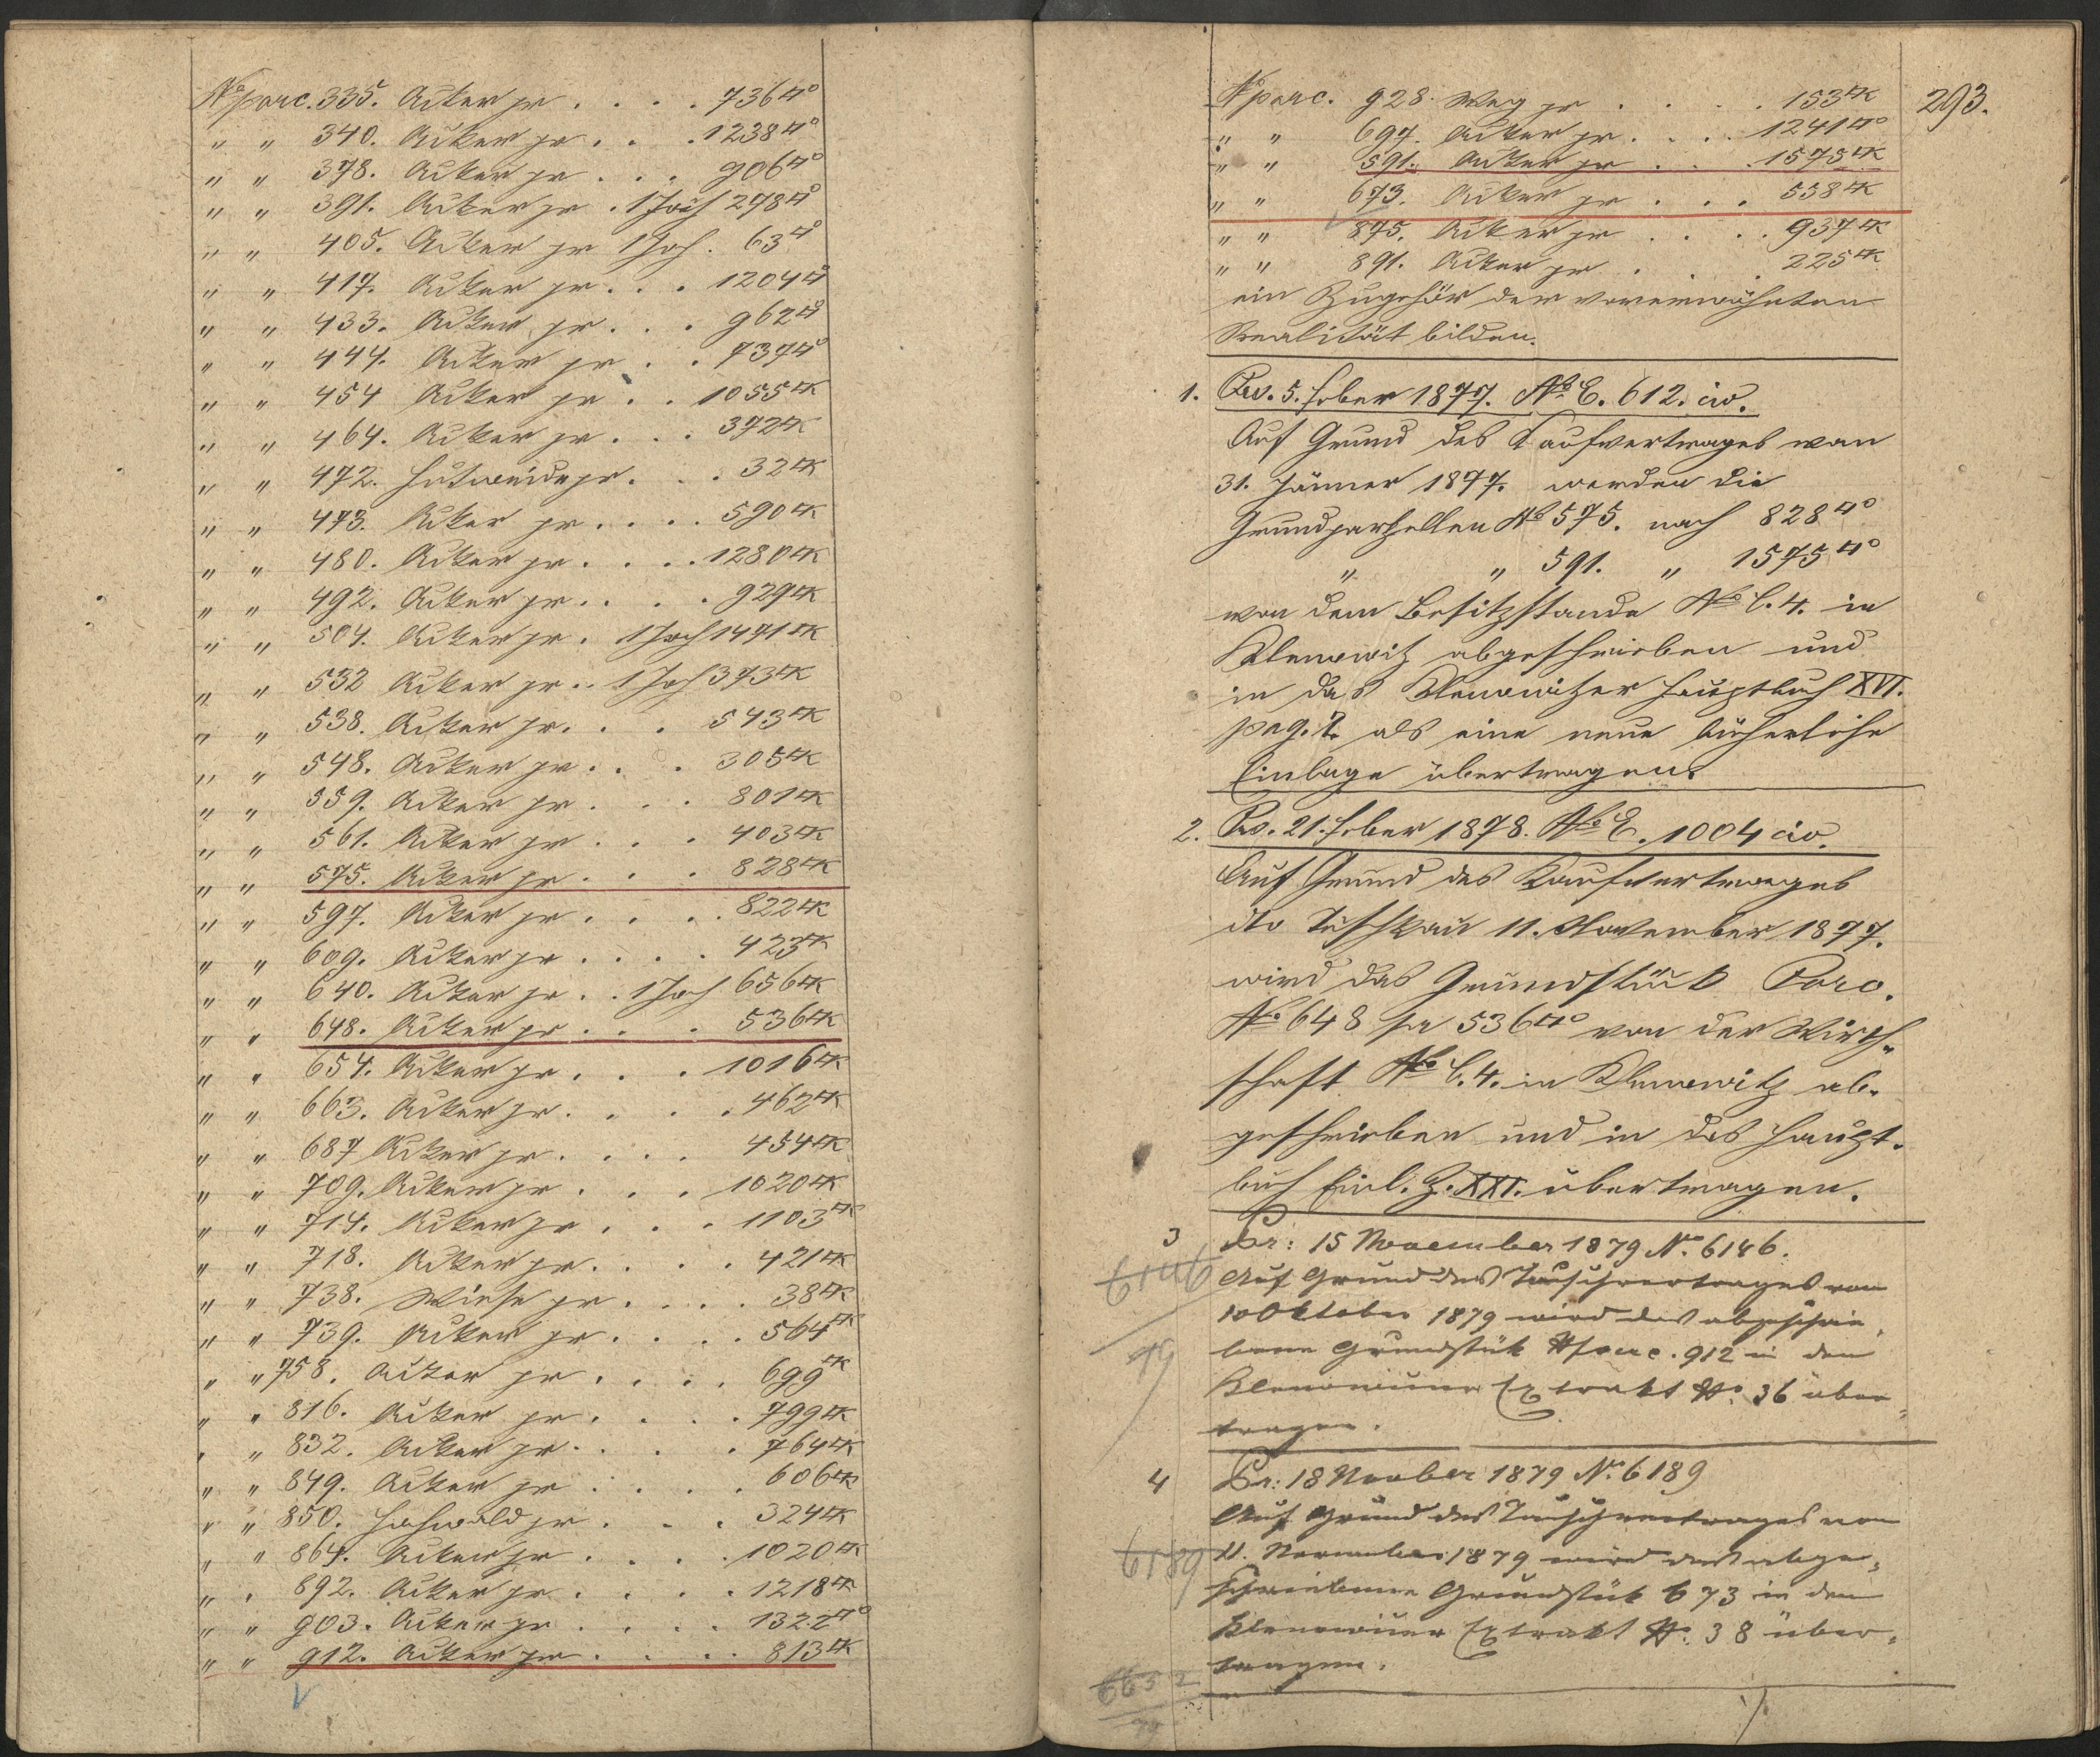 Nº parc. 335. Acker pr . . . . 736□°
" " 340. Acker pr . . . 1238□°
" " 378. Acker pr . . . 906□°
" " 391. Acker pr . 1 Joch 278□°
" " 405. Acker pr 1 Joch . 63□°
" " 417. Acker pr . . . 1204□°
" " 433. Acker pr . . . 962□°
" " 444. Acker pr . . 737□°
" " 454 Acker pr . . 1055□K
" " 464. Acker pr . . . 372□K
" " 472. Hutweide pr . . . 32□K
" " 473. Acker pr . . . . 590□K
" " 480. Acker pr . . . . 1280□K
" " 492. Acker pr . . . . 929□K
" " 504. Acker pr . 1 Joch 1471□K
" " 532 Acker pr . . 1 Joch 373□K
" " 538. Acker pr . . . 543□K
" " 548. Acker pr . . . 305□K
" " 559. Acker pr . . . 801□K
" " 561. Acker pr . . . 403□K
" " 575. Acker pr . . . 828□K
" " 597. Acker pr . . . . 822□K
" " 609. Acker pr . . . . 423□K
" " 640. Acker pr . . 1 Joch 656□K
" " 648. Acker pr . . . 536□K
" " 654. Acker pr . . . 1016□K
" " 663. Acker pr . . . . 462□K
" " 687 Acker pr . . . . 454□K
" " 709. Acker pr . . . 1020□K
" " 714. Acker pr . . . 1103□K
" " 718. Acker pr . . . . 421□K
" " 738. Wiese pr . . . . 38□K
" " 739. Acker pr . . . . 564□K
" " 758. Acker pr . . . . 699□K
" " 816. Acker pr . . . . 799□K
" " 832. Acker pr . . . . 764□K
" " 849. Acker pr . . . . 606□K
" " 850. Hochwald pr . . . 324□K
" " 864. Acker pr . . . . 1020□K
" " 892. Acker pr . . . . 1218□K
" " 903. Acker pr . . . . 1322□°
" " 912. Acker pr . . . . 813□K
293.
Nº parc. 928. Weg pr . . . . 153□K
" " 697. Acker pr . . . . 1241□°
" " 591. Acker pr . . . 1575□K
" " 673. Acker pr . . . 538□K
" " 875. Acker pr . . . . 937□K
" " 891. Acker pr . . . . 225□K
ein Zugehör der vorerwähnten
Realität bilden.
1. Prs. 5. Feber 1877. Nº E. 612. civ.
Auf Grund des Kaufvertrages vom
31. Jänner 1877. werden die
Grundparzellen Nº 575. nach 828□°
" " 591. " 1575□°
von dem Besitzstande Nº C. 4. in
Klenowitz abgeschrieben und
in das Klenowitzer Hauptbuch XVI.
pag. 1. als eine neue bücherliche
Einlage übertragen.
2. Prs. 21. Feber 1878. Nº E. 1004 civ.
Auf Grund des Kaufvertrages
dto Tischkau 11. November 1877.
wird das Grundstück Parc.
Nº 648 pr 536□° von der Wirth-
schaft Nº C. 4. in Klenowitz ab-
geschrieben und in das Haupt-
buch Einl. Z. XXI. übertragen.
3 Pr: 15 November 1879 Nº 6146.
6146
79
Auf Grund des Tauschvertrages vom
10 Oktober 1879 wird das abgeschrie-
bene Grundstük Nº parc. 912 in den
Extrakt Nº 36 über-
tragen.
4 Pr: 18 November 1879 Nº 6189
Auf Grund des Tauschvertrages vom
6189
11. November 1879 wird das abge-
schriebene Grundstük 673 in den
Extrakt Nº 38 über-
tragen.
6652
79